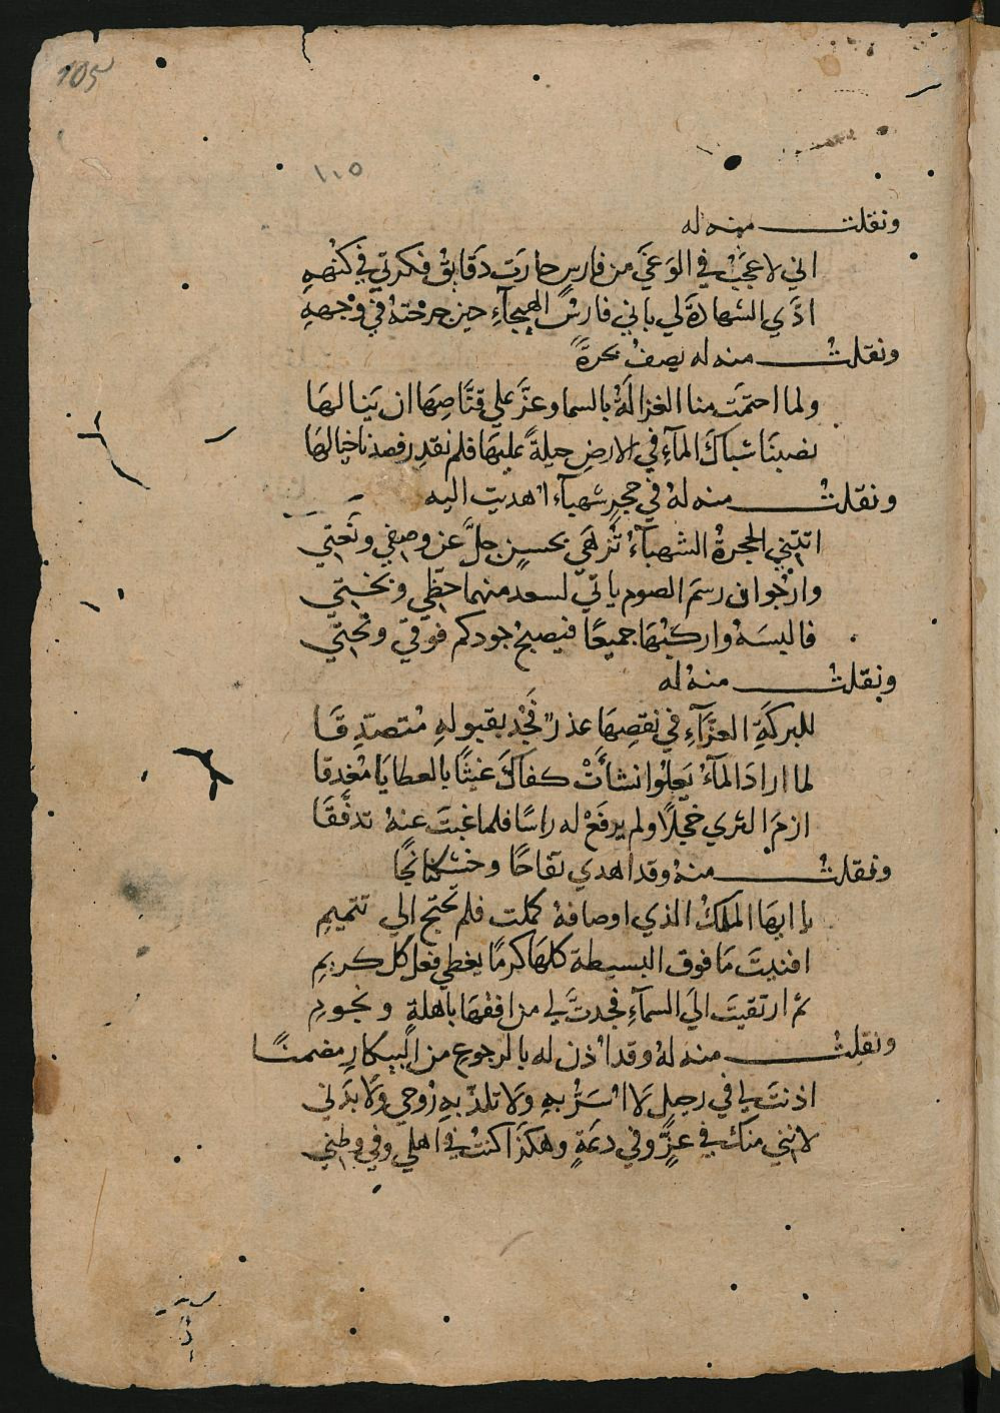 105
١٠٥
ونقلت منه له
اني لاعجب في الوغي من فارس حارت دقايق فكرتي في كنهه
ادي الشهادة لي باني فارس الهيجآء حين جرحته في وجهه
ونقلت منه له يصف بحرة
ولما احتمت منا الغزالة بالسما وعز علي قناصها ان ينالها
نصبنا شباك المآء في الارض حيلة عليها فلم نقدر فصدنا خيالها
ونقلت منه له في حجر شهبآء اهديت اليه
اتتني الحجرة الشهبآء تزهي بحسن جل عن وصفي ونعتي
وارجوا ان رسم الصوم ياتي لسعد منهما حظي وبختي
فالبسه واركبها جميعا فيصبح جودكم فوقي وتحتي
ونقلت منه له
للبركة الغرآء في نقصها عذر فجد بقبوله متصدقا
لما اراد المآء يعلوا انشأت كفاك غيثا بالعطايا مغدقا
ازم الثري خجلا ولم يرفع له راسا فلما غبت عنه تدفقا
ونقلت منه وقد اهدي تفاحا وخشكنانجا
يا ايها الملك الذي اوصافه كملت فلم تحتج الي تتميم
افنيت ما فوق البسيطة كلها كرما يغطي فعل كل كريم
ثم ارتقيت الي السمآء فجدت لي من افقها باهلة ونجوم
ونقلت منه له وقد اذن له بالرجوع من البيكار مضمنا
اذنت لي في رحيل لا اسر به ولا تلذ به روحي ولا بدني
لانني منك في عز وفي دعة وهكذا كنت في اهلي وفي وطني